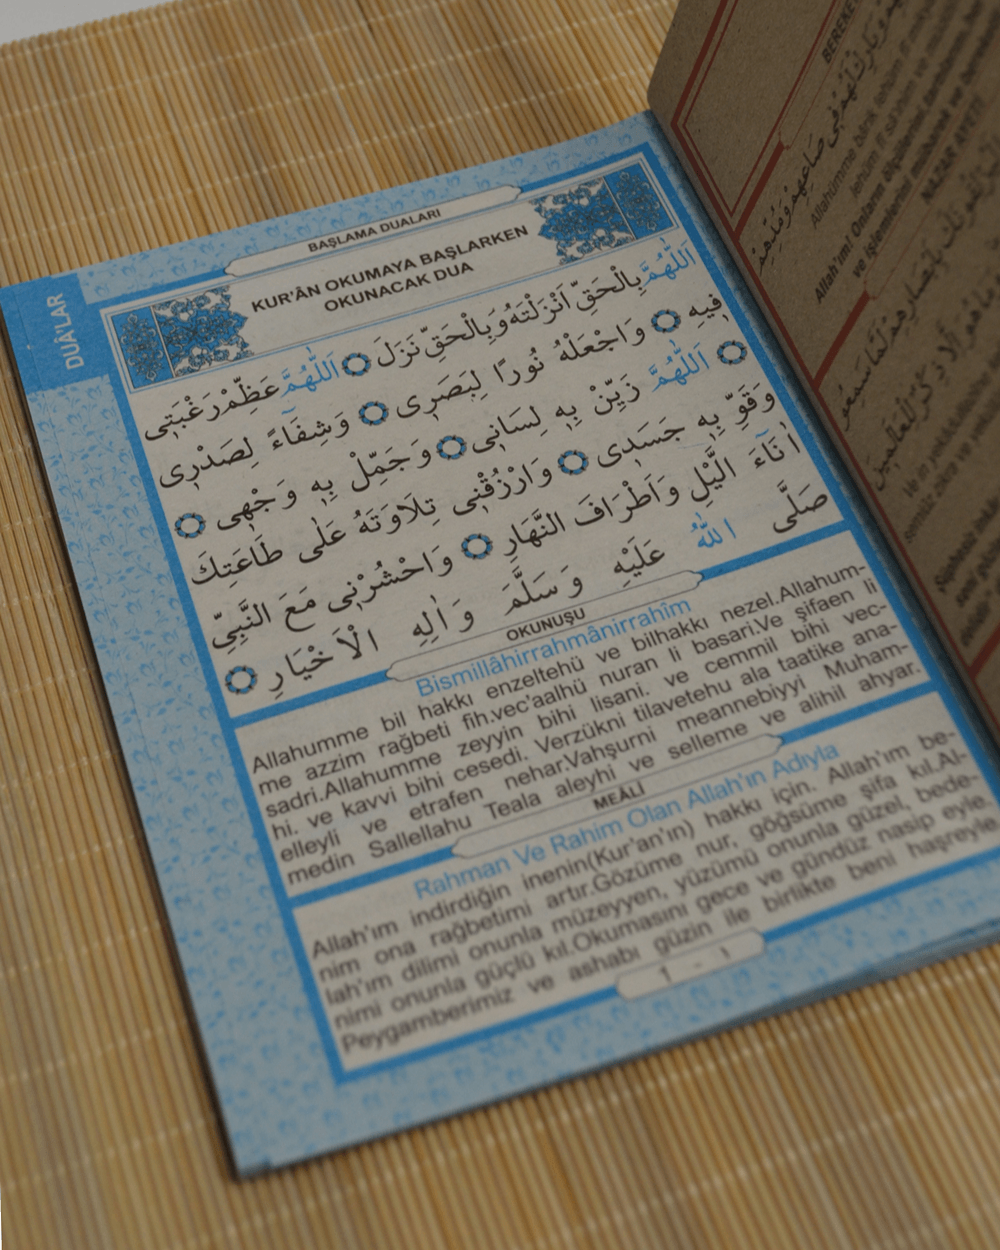 DUÂ'LAR
BAŞLAMA DUALARI
KUR'ÂN OKUMAYA BAŞLARKEN
OKUNACAK DUA
اَللّٰهُمَّ بِالْحَقِّ اَنْزَلْتَهُ وَبِالْحَقِّ نَزَلَ ۝ اَللّٰهُمَّ عَظِّمْ رَغْبَتِى
فِيهِ ۝ وَاجْعَلْهُ نُورًا لِبَصَرِى ۝ وَشِفَٓاءً لِصَدْرِى
۝ اَللّٰهُمَّ زَيِّنْ بِهِ لِسَانِى ۝ وَجَمِّلْ بِهِ وَجْهِى ۝
وَقَوِّ بِهِ جَسَدِى ۝ وَارْزُقْنِى تِلَاوَتَهُ عَلٰى طَاعَتِكَ
اٰنَٓاءَ الَّيْلِ وَاَطْرَافَ النَّهَارِ ۝ وَاحْشُرْنِى مَعَ النَّبِيِّ
صَلَّى اللّٰهُ عَلَيْهِ وَسَلَّمَ وَاٰلِهِ الْاَخْيَارِ ۝
OKUNUŞU
Bismillâhirrahmânirrahîm
Allahumme bil hakkı enzeltehü ve bilhakkı nezel.Allahum-
me azzim rağbeti fih.vec'aalhü nuran li basari.Ve şifaen li
sadri.Allahumme zeyyin bihi lisani. ve cemmil bihi vec-
hi. ve kavvi bihi cesedi. Verzükni tilavetehu ala taatike ana-
elleyli ve etrafen nehar.Vahşurni meannebiyyi Muham-
medin Sallellahu Teala aleyhi ve selleme ve alihil ahyar.
MEÂLİ
Rahman Ve Rahim Olan Allah'ın Adıyla
Allah'ım indirdiğin inenin(Kur'an'ın) hakkı için. Allah'ım be-
nim ona rağbetimi artır.Gözüme nur, göğsüme şifa kıl.Al-
lah'ım dilimi onunla müzeyyen, yüzümü onunla güzel, bede-
nimi onunla güçlü kıl.Okumasını gece ve gündüz nasip eyle.
Peygamberimiz ve ashabı güzin ile birlikte beni haşreyle
1 - ١
BEREKE
Allahümme bârik lehüm fî
lehüm fî sâ'ihim ve
Allah'ım! Onların ölçülerini
ve işlemlerini mübarek ve
NAZAR AYETİ